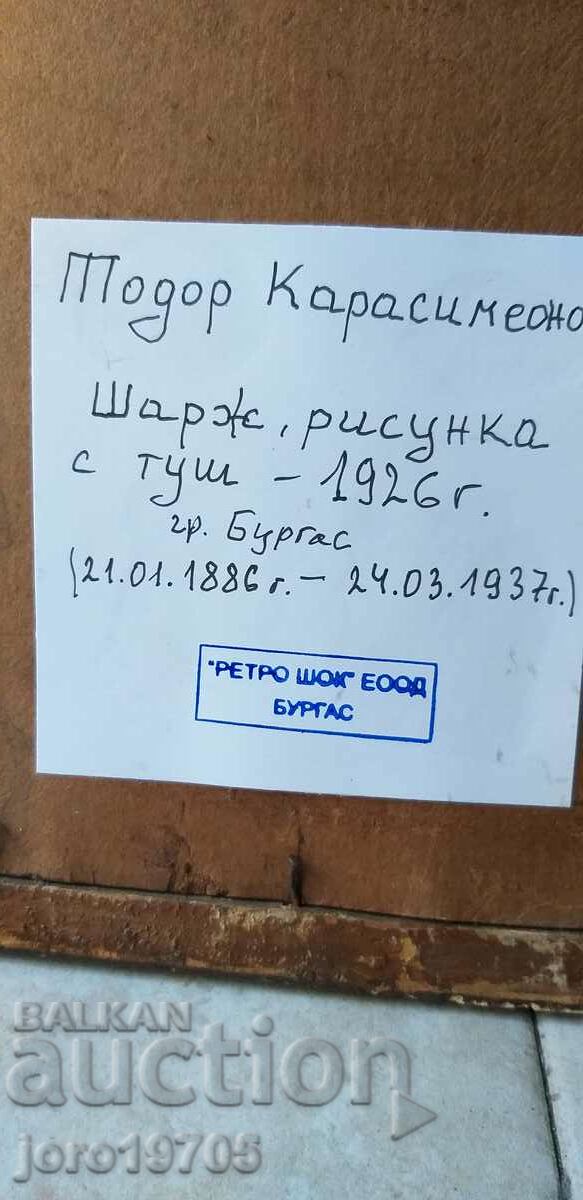 Тодор Карасимеоно
Шарж, рисунка
с туш – 1926г.
гр. Бургас
(21.01.1886г. – 24.03.1937г.)
"РЕТРО ШОК" ЕООД
БУРГАС
BALKAN
auction
joro19705